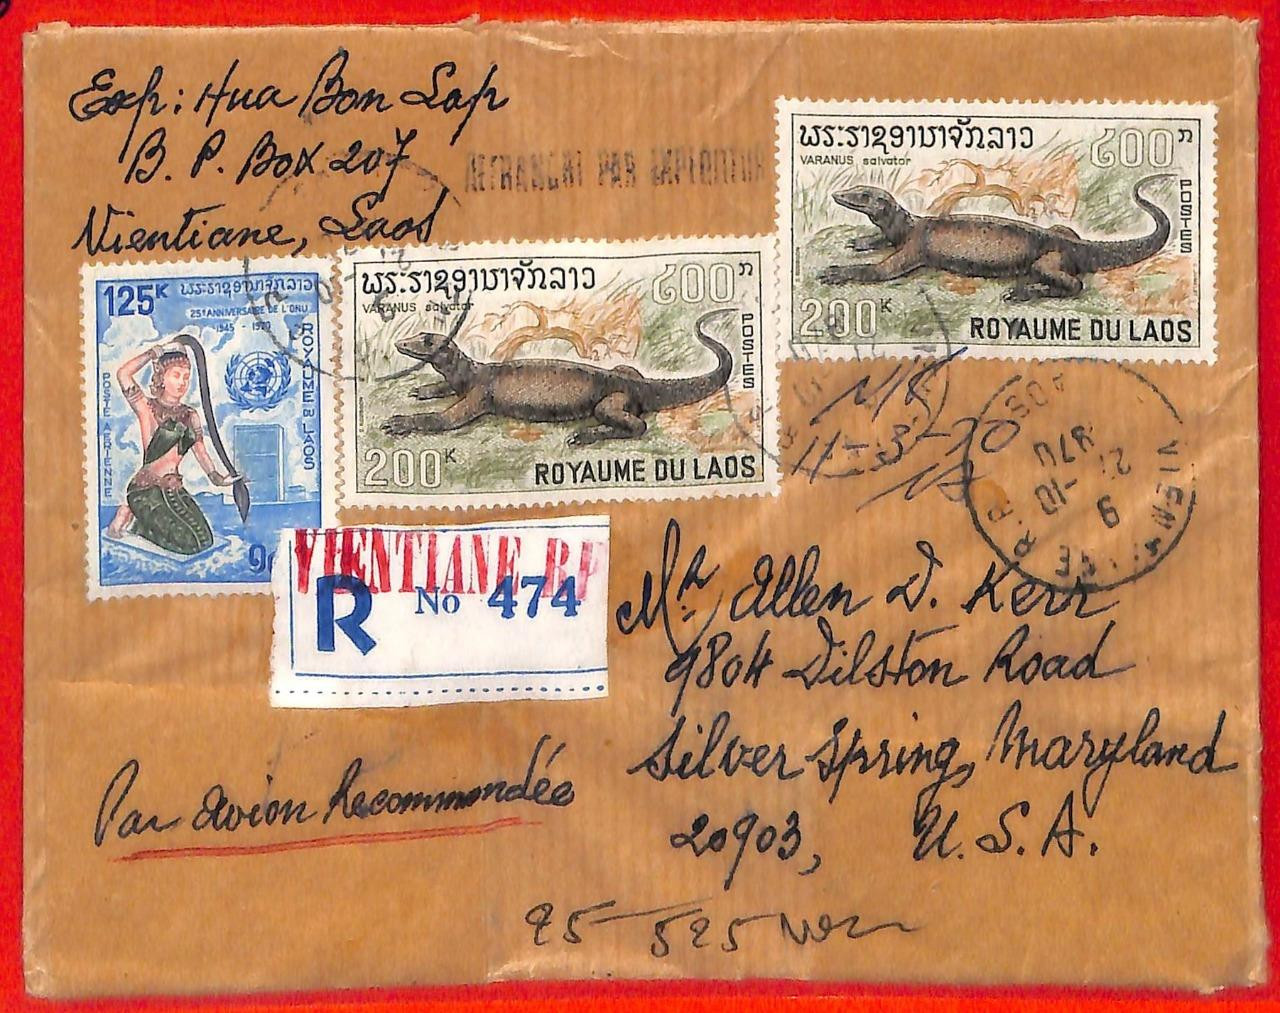 Exp: Hua Bon Lap
B. P. Box 207
Vientiane, Laos
AFFRANCHI PAR EXPEDITEUR
ພຣະຣາຊອານາຈັກລາວ
໒໐໐ ກ
VARANUS salvator
POSTES
200K
ROYAUME DU LAOS
125K
ພຣະຣາຊອານາຈັກລາວ
25e ANNIVERSAIRE DE L'ONU
1945 - 1970
ROYAUME DU LAOS
POSTE AERIENNE
ພຣະຣາຊອານາຈັກລາວ
໒໐໐ ກ
VARANUS salvator
POSTES
200K
ROYAUME DU LAOS
11-3-70
VIENTIANE R.P.
LAOS
9
21-10
1970
VIENTIANE RP
R No 474
Mr Allen D. Kerr
9804 Dilston Road
Silver Spring, Maryland
20903, U. S. A.
Par avion Recommandée